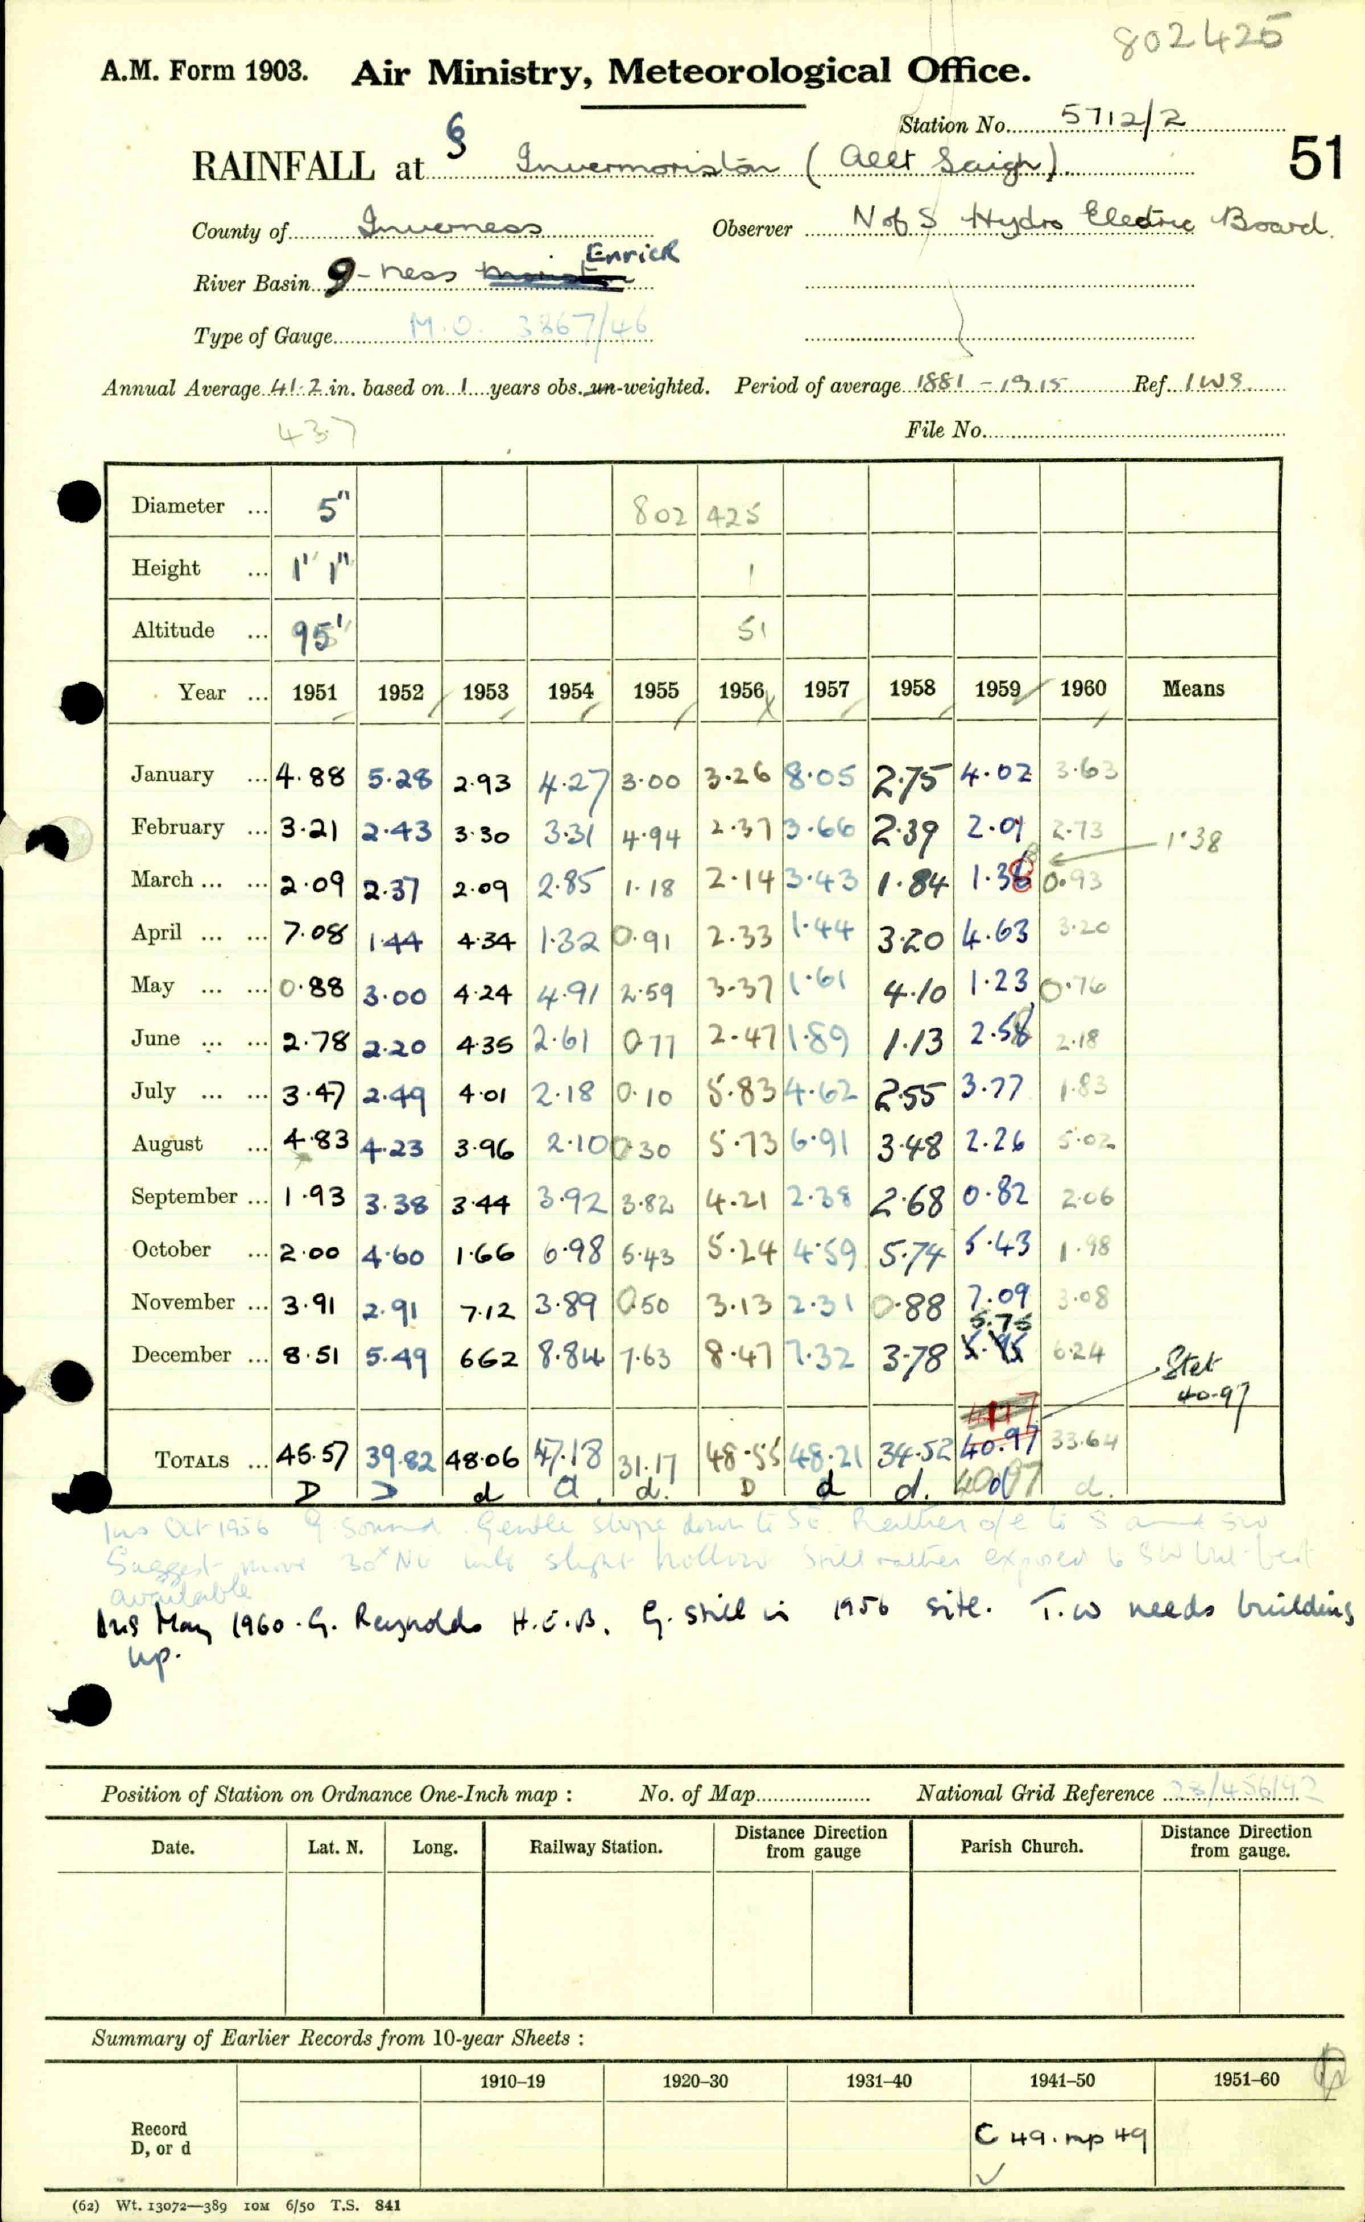 802425
A.M. Form 1903. Air Ministry, Meteorological Office.
Station No. 5712/2
51
RAINFALL at § Invermoriston (Allt Saigh)
County of Inverness Observer N of S Hydro Electric Board.
River Basin 9-Ness Enrick
Type of Gauge M.O. 3367/46
Annual Average 41.2 in. based on 1 years obs. un-weighted. Period of average 1881-1915 Ref. IWS
43.7
File No.
Diameter ... 5" 802 425
Height ... 1' 1" 1
Altitude ... 95' 51
Year ... 1951 1952 1953 1954 1955 1956 1957 1958 1959 1960 Means
January ... 4.88 5.28 2.93 4.27 3.00 3.26 8.05 2.75 4.02 3.63
February ... 3.21 2.43 3.30 3.31 4.94 2.37 3.66 2.39 2.01 2.73 1.38
March ... ... 2.09 2.37 2.09 2.85 1.18 2.14 3.43 1.84 1.38 0.93
April ... ... 7.08 1.44 4.34 1.32 0.91 2.33 1.44 3.20 4.63 3.20
May ... ... 0.88 3.00 4.24 4.91 2.59 3.37 1.61 4.10 1.23 0.76
June ... ... 2.78 2.20 4.35 2.61 0.77 2.47 1.89 1.13 2.58 2.18
July ... ... 3.47 2.49 4.01 2.18 0.10 5.83 4.62 2.55 3.77 1.83
August ... 4.83 4.23 3.96 2.10 0.30 5.73 6.91 3.48 2.26 5.02
September ... 1.93 3.38 3.44 3.92 3.82 4.21 2.38 2.68 0.82 2.06
October ... 2.00 4.60 1.66 6.98 5.43 5.24 4.59 5.74 5.43 1.98
November ... 3.91 2.91 7.12 3.89 0.50 3.13 2.31 0.88 7.09 3.08
5.75
December ... 8.51 5.49 6.62 8.84 7.63 8.47 7.32 3.78 6.24
Stet
40.97
TOTALS ... 45.57 39.82 48.06 47.18 31.17 48.55 48.21 34.52 40.97 33.64
40.97
D D d d. d. D d d. d d.
Ins Oct 1956 G sound. Gentle slope down to SE. Rather o/e to S and SW
Suggest move 30" NW into slight hollow still rather exposed to SW but best
available
Ins May 1960. G. Reynolds H.E.B. G. still in 1956 site. T.W needs building
up.
Position of Station on Ordnance One-Inch map : No. of Map National Grid Reference 28/456192
Date. Lat. N. Long. Railway Station. Distance Direction from gauge Parish Church. Distance Direction from gauge.
Summary of Earlier Records from 10-year Sheets :
1910–19 1920–30 1931–40 1941–50 1951–60
Record
D, or d
C 49. mp 49
(62) Wt. 13072—389 10M 6/50 T.S. 841